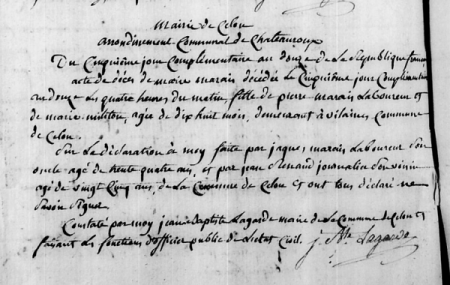 Mairie de Celon
arrondissement Communal de Chateauroux
Du Cinquième jour Complémentaire an douze de la République française
acte de décès de marie marais décédée le Cinquième jour Complémentaire
an douze à quatre heures du matin, fille de pierre marais laboureur et
de marie militon, agée de dix huit mois, demeurant à vilaines Commune
de Celon.
Sur la déclaration à moy faite par jaques marais laboureur son
oncle agé de trente quatre ans, et par jean Renaud journalier Son voisin
agé de vingt Cinq ans, de la Commune de Celon et ont tous déclaré ne
Savoir Signer
Constaté par moy jean Baptiste Lagarde maire de la Commune de Celon et
faisant les fonctions d'officier public de l'état Civil. j. Bte Lagarde